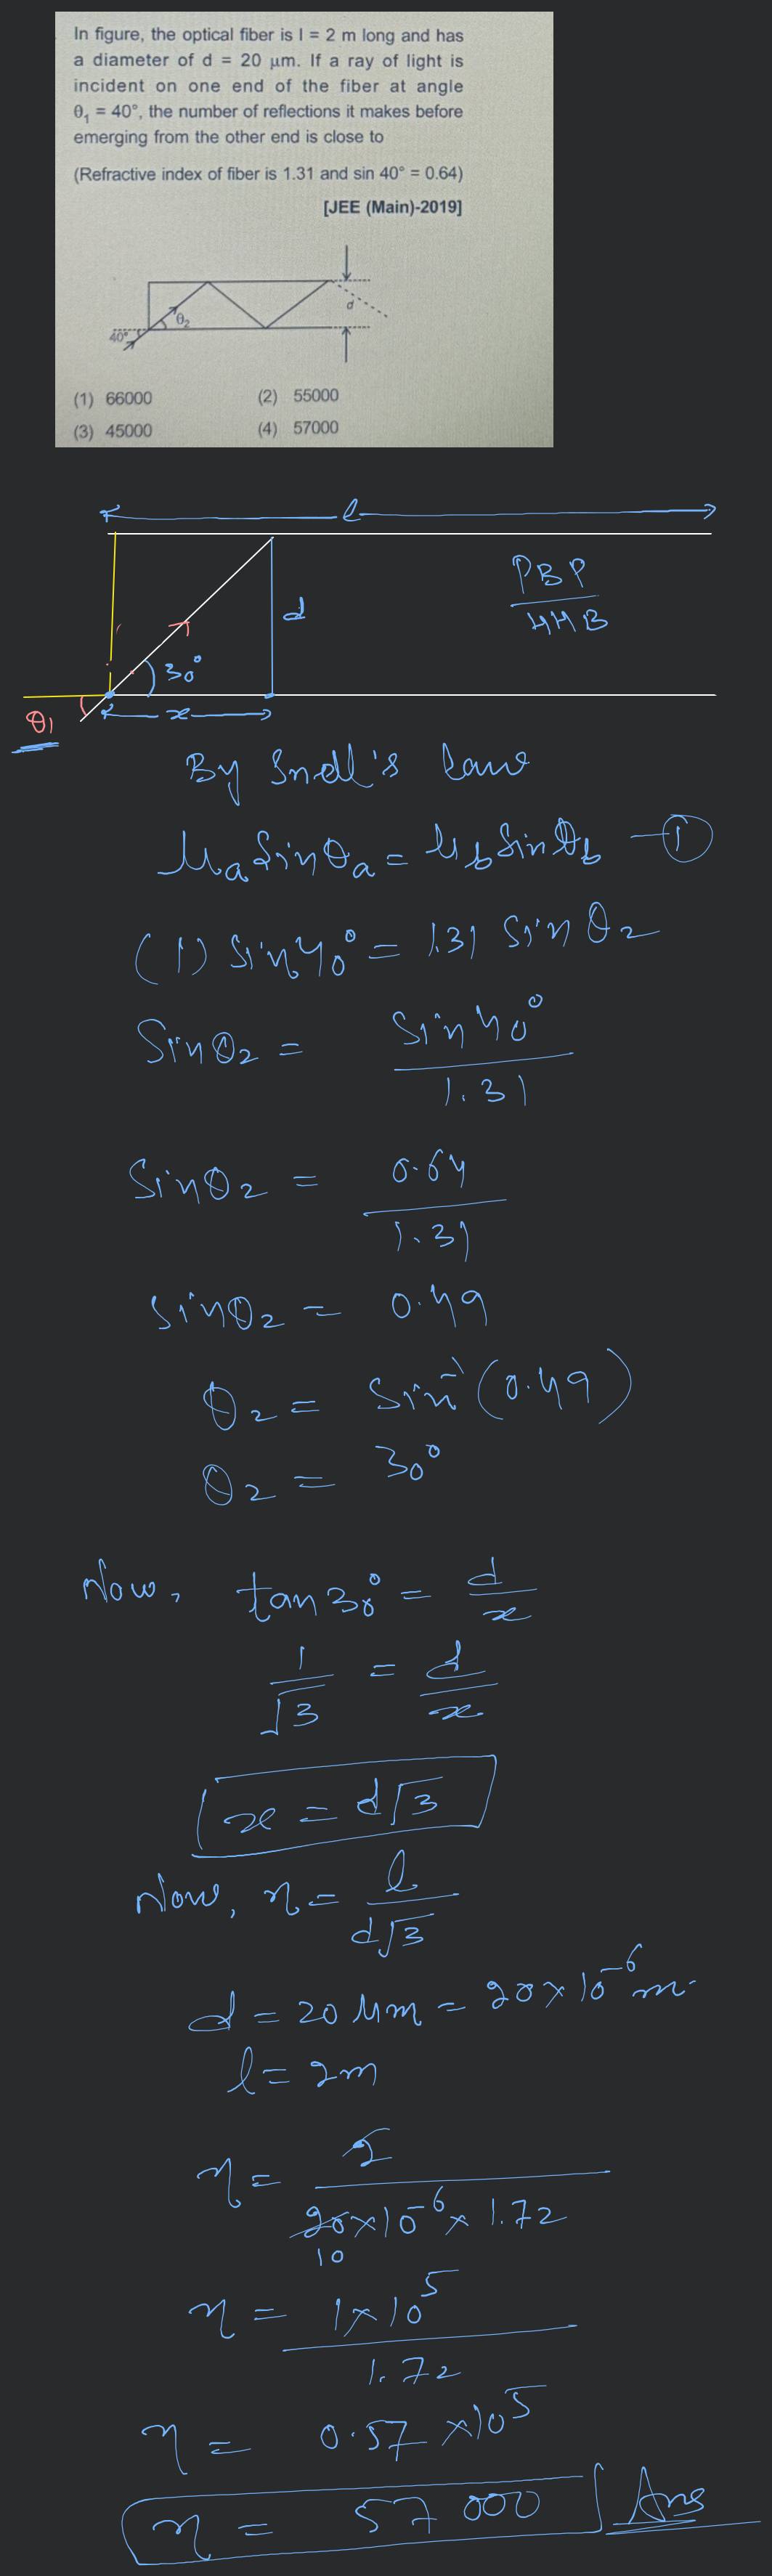 In figure, the optical fiber is l = 2 m long and has
a diameter of d = 20 μm. If a ray of light is
incident on one end of the fiber at angle
θ₁ = 40°, the number of reflections it makes before
emerging from the other end is close to
(Refractive index of fiber is 1.31 and sin 40° = 0.64)
[JEE (Main)-2019]
40°
θ₂
d
(1) 66000
(2) 55000
(3) 45000
(4) 57000
l
PBP
HHB
d
30°
x
θ₁
By Snell's law
μₐ sinθₐ = μ_b sinθ_b —①
(1) sin40° = 1.31 sinθ₂
sinθ₂ = sin40° / 1.31
sinθ₂ = 0.64 / 1.31
sinθ₂ = 0.49
θ₂ = sin⁻¹(0.49)
θ₂ = 30°
Now, tan30° = d / x
1 / √3 = d / x
x = d√3
Now, n = l / d√3
d = 20 μm = 20 × 10⁻⁶ m.
l = 2m
n = 2 / 20 × 10⁻⁶ × 1.72
10
n = 1 × 10⁵ / 1.72
n = 0.57 × 10⁵
n = 57000 Ans